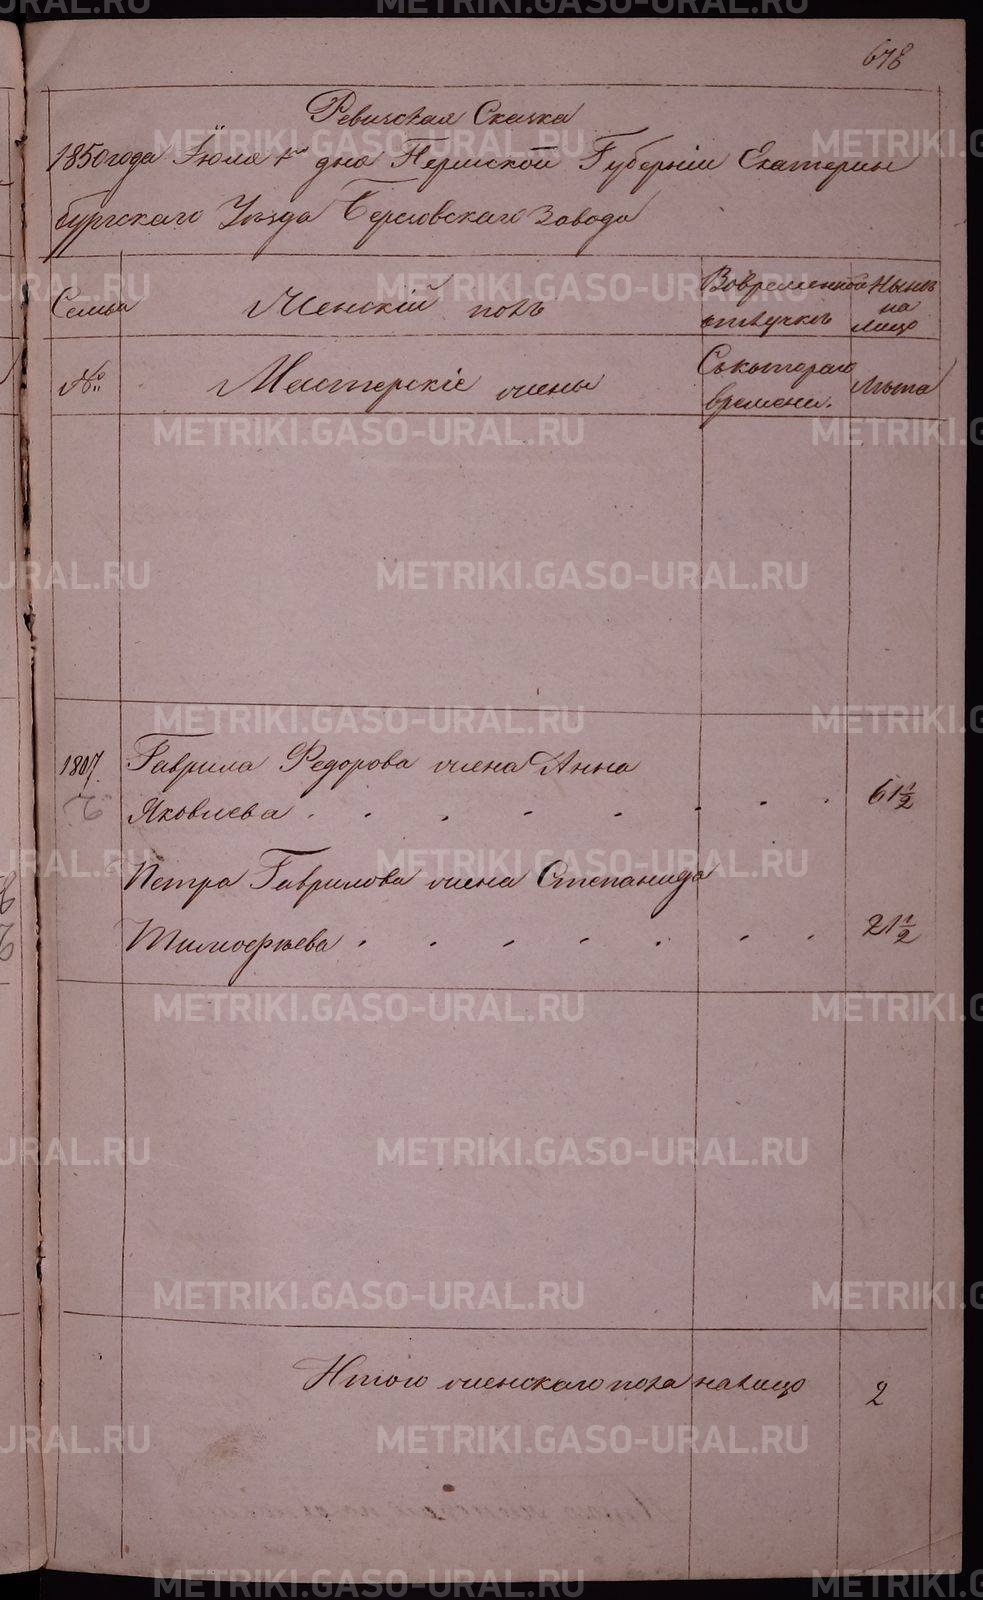 678
Ревизская Сказка
1850 года Іюля 1го дня Пермской Губерніи Екатерин
бургскаго Уѣзда Березовскаго Завода
Семьи
Женскій полъ
Во временной отлучкѣ
Нынѣ на лицо
№
Мастерскіе жены
Съ котораго времени.
Лѣта
1807.
Гаврила Федорова жена Анна
Яковлева . . . . . . . . 61 1/2
Петра Гаврилова жена Степанида
Тимофѣева . . . . . . . 21 1/2
Итого женскаго пола на лицо 2
METRIKI.GASO-URAL.RU